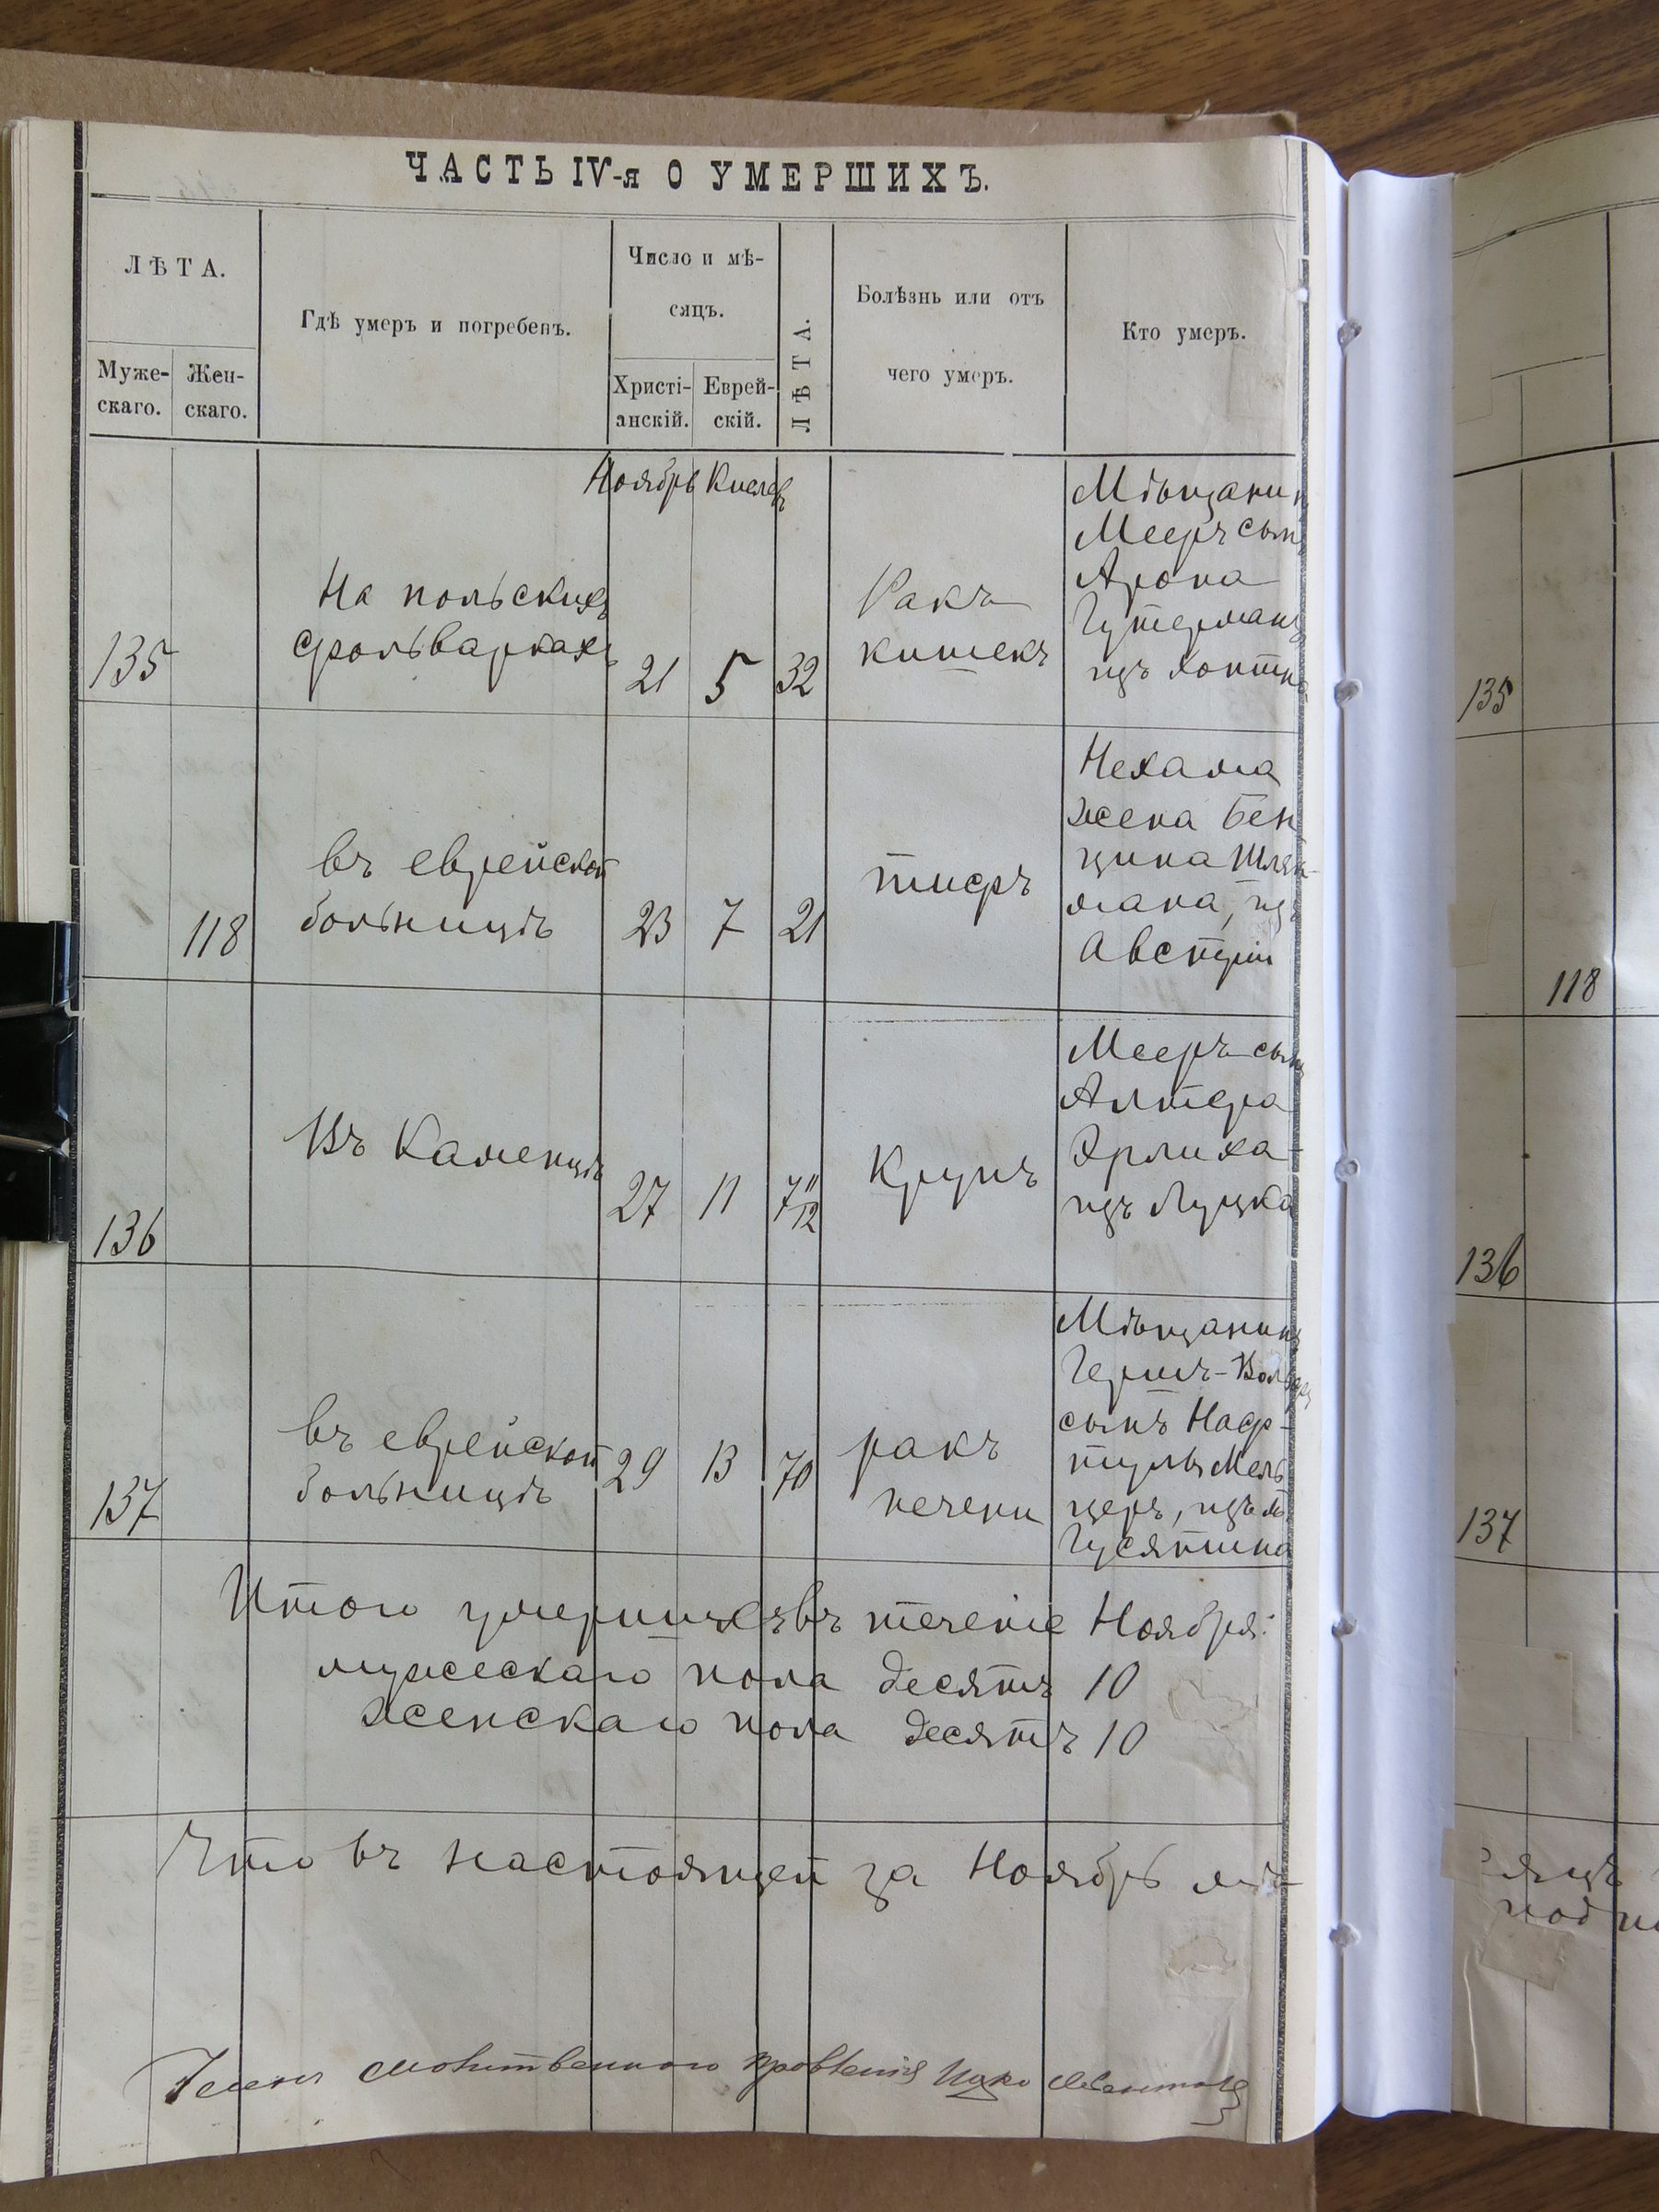 ЧАСТЬ IV-я О УМЕРШИХЪ.
ЛѢТА.
Муже-
скаго.
Жен-
скаго.
Гдѣ умеръ и погребенъ.
Число и мѣ-
сяцъ.
Христі-
анскій.
Еврей-
скій.
ЛѢТА.
Болѣзнь или отъ
чего умеръ.
Кто умеръ.
Ноябрь Кислев
135
На польскихъ
фольваркахъ
21
5
32
Ракъ
кишекъ
Мѣщанинъ
Мееръ сынъ
Арона
Гутерманъ
изъ Хотина
118
въ еврейской
больницѣ
23
7
21
тифъ
Нехама
жена Бен
циона
мана, изъ
Австріи
136
Въ Каменцѣ
27
11
7 11/12
Крупъ
Мееръ сынъ
Алтера
Эрлиха
изъ Луцка
137
въ еврейской
больницѣ
29
13
70
ракъ
печени
Мѣщанинъ
Гершъ-Вольфъ
сынъ Наф-
тулы Мель
церъ, изъ м.
Гусятина
Итого умершихъ въ теченіе Ноября:
мужескаго пола десять 10
женскаго пола десять 10
Что въ настоящей за Ноябрь мѣ-
Членъ молитвенного правленія Ицко
135
118
136
137
сяцъ
под